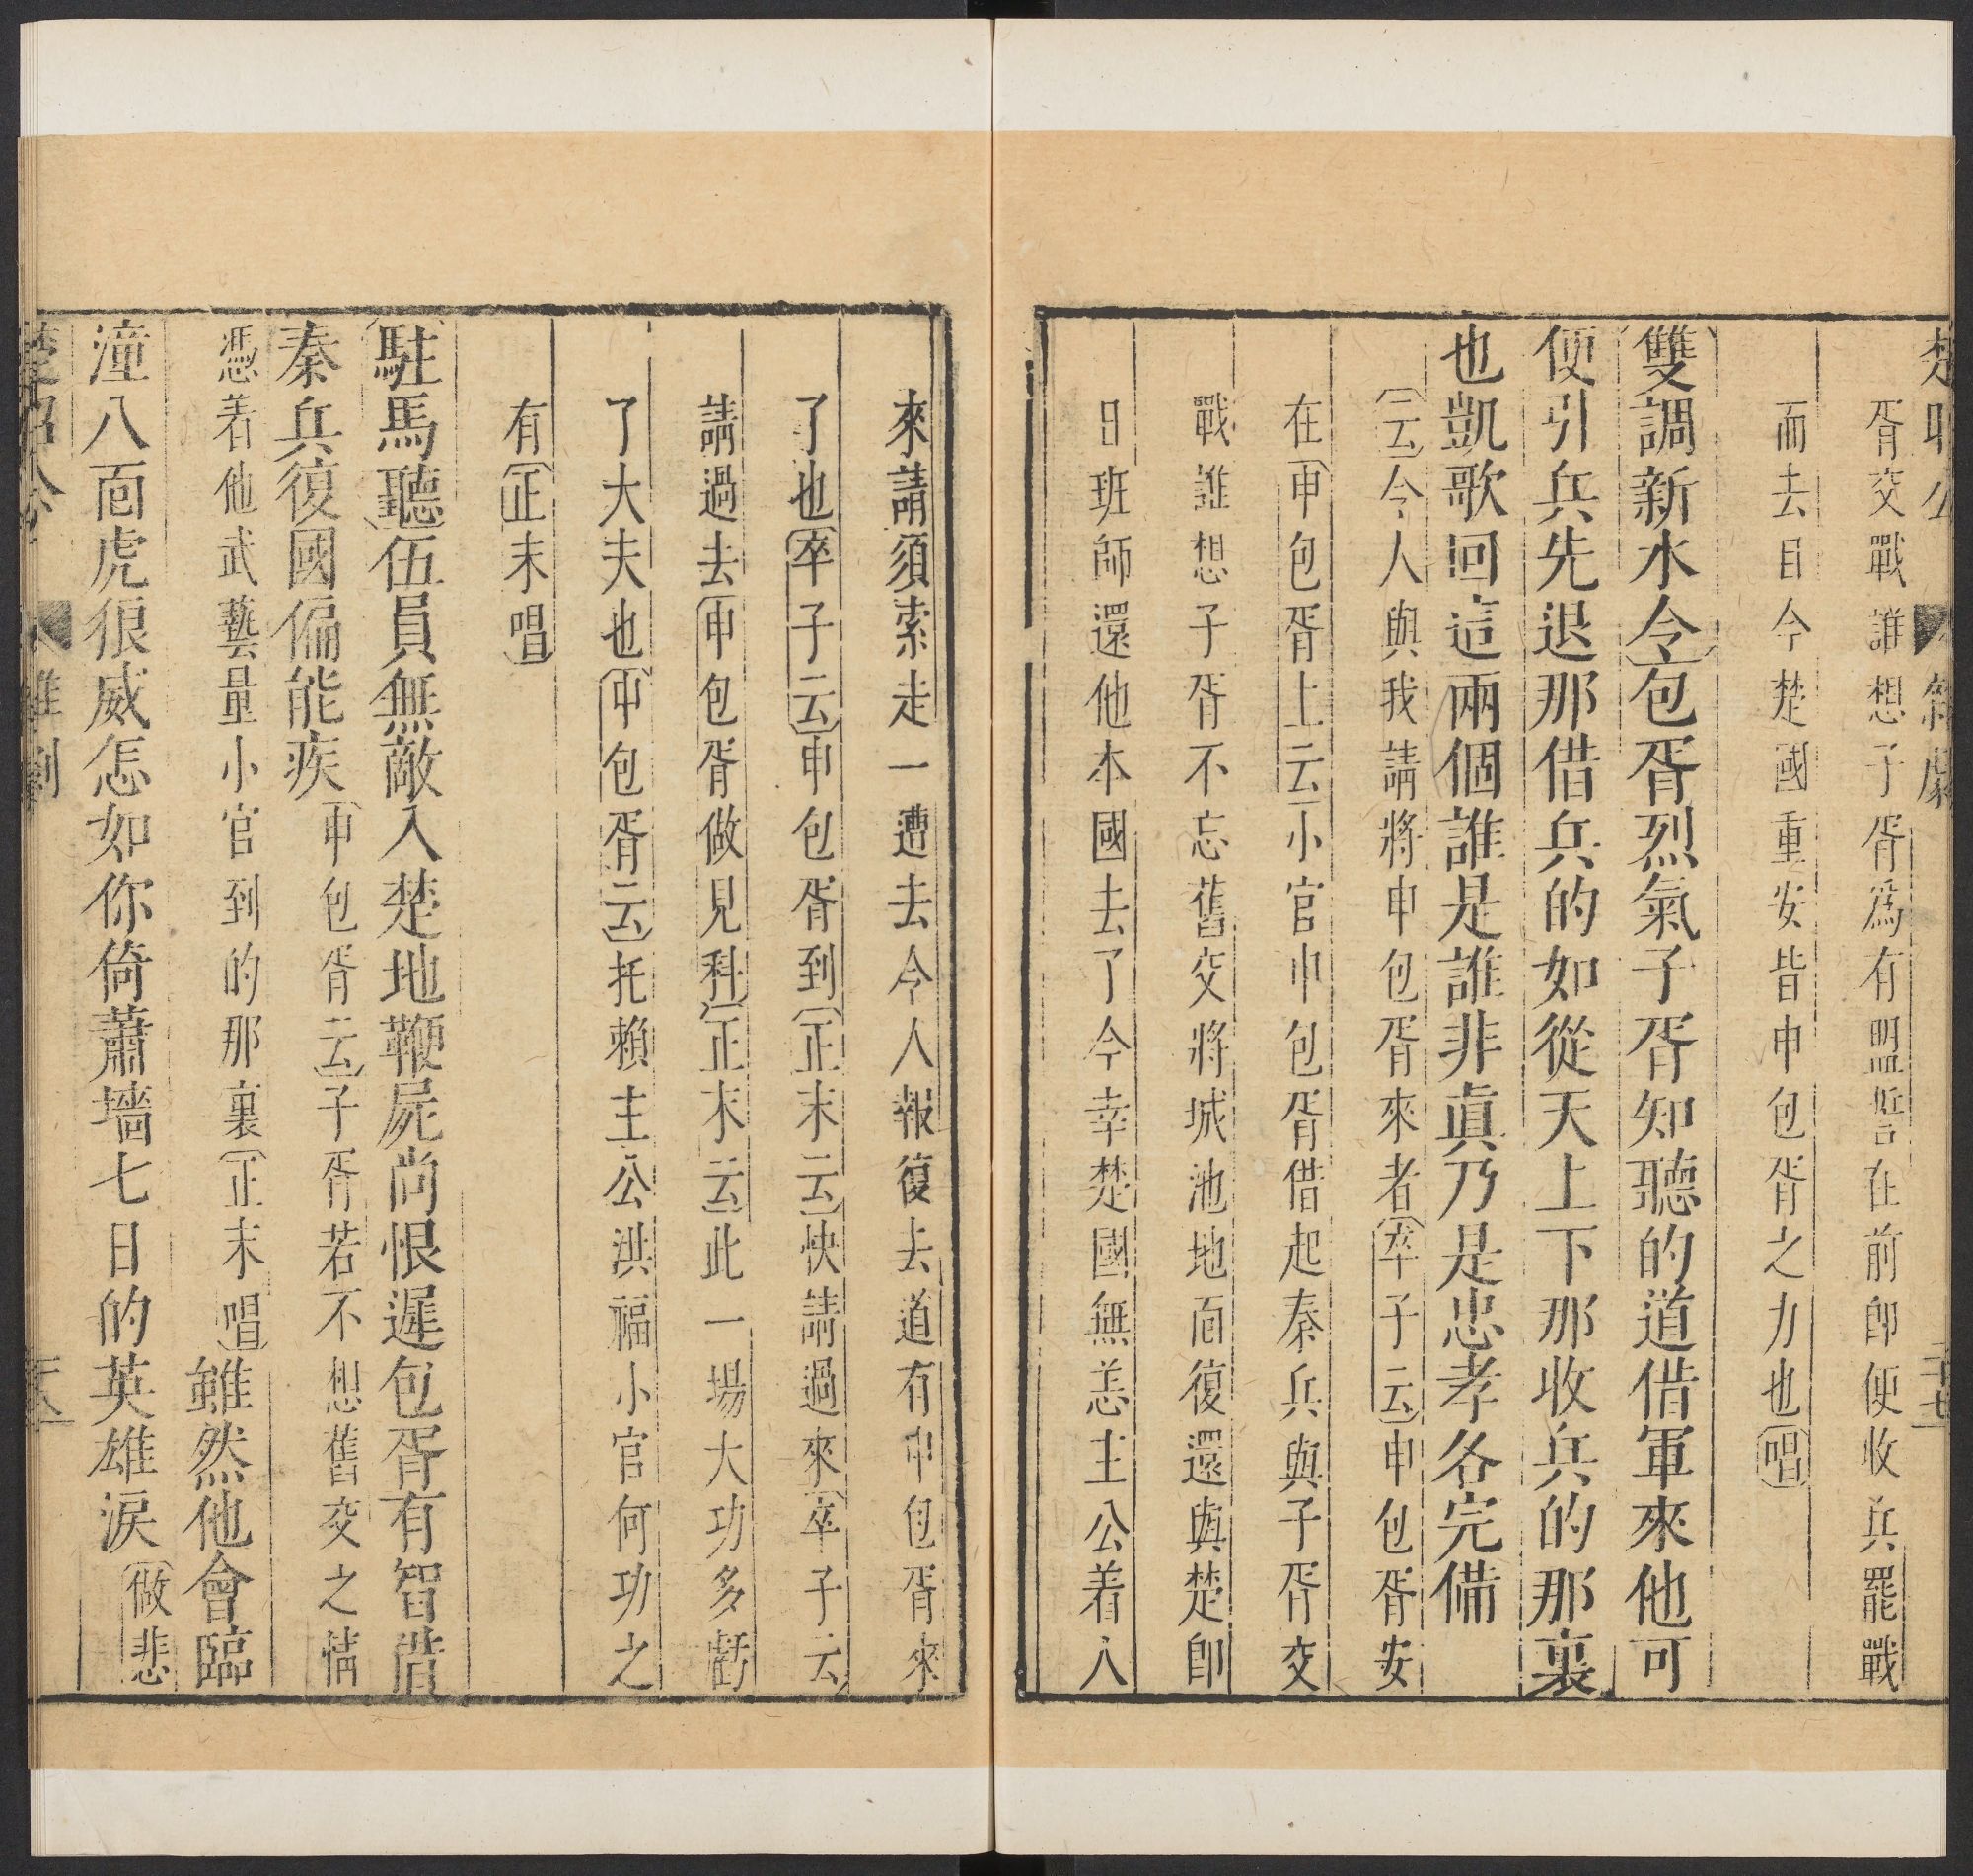 楚昭公 雜劇 二十七
胥交戰誰想子胥爲有盟誓在前卽便收兵罷戰
而去目今楚國重安皆申包胥之力也〔唱〕
〔雙調新水令〕包胥烈氣子胥知聽的道借軍來他可
便引兵先退那借兵的如從天上下那收兵的那裏
也凱歌回這兩個誰是誰非真乃是忠孝各完備
〔云〕令人與我請將申包胥來者〔卒子云〕申包胥安
在〔申包胥上云〕小官申包胥借起秦兵與子胥交
戰誰想子胥不忘舊交將城池地面復還與楚卽
日班師還他本國去了今幸楚國無恙主公着人
來請須索走一遭去令人報復去道有申包胥來
了也〔卒子云〕申包胥到〔正末云〕快請過來〔卒子云〕
請過去〔申包胥做見科〕〔正末云〕此一場大功多虧
了大夫也〔申包胥云〕托賴主公洪福小官何功之
有〔正末唱〕
〔駐馬聽〕伍員無敵入楚地鞭屍尚恨遲包胥有智借
秦兵復國偏能疾〔申包胥云〕子胥若不想舊交之情
憑着他武藝量小官到的那裏〔正末唱〕雖然他會臨
潼八面虎狼威怎如你倚蕭墻七日的英雄淚〔做悲
楚昭公 雜劇 二十八